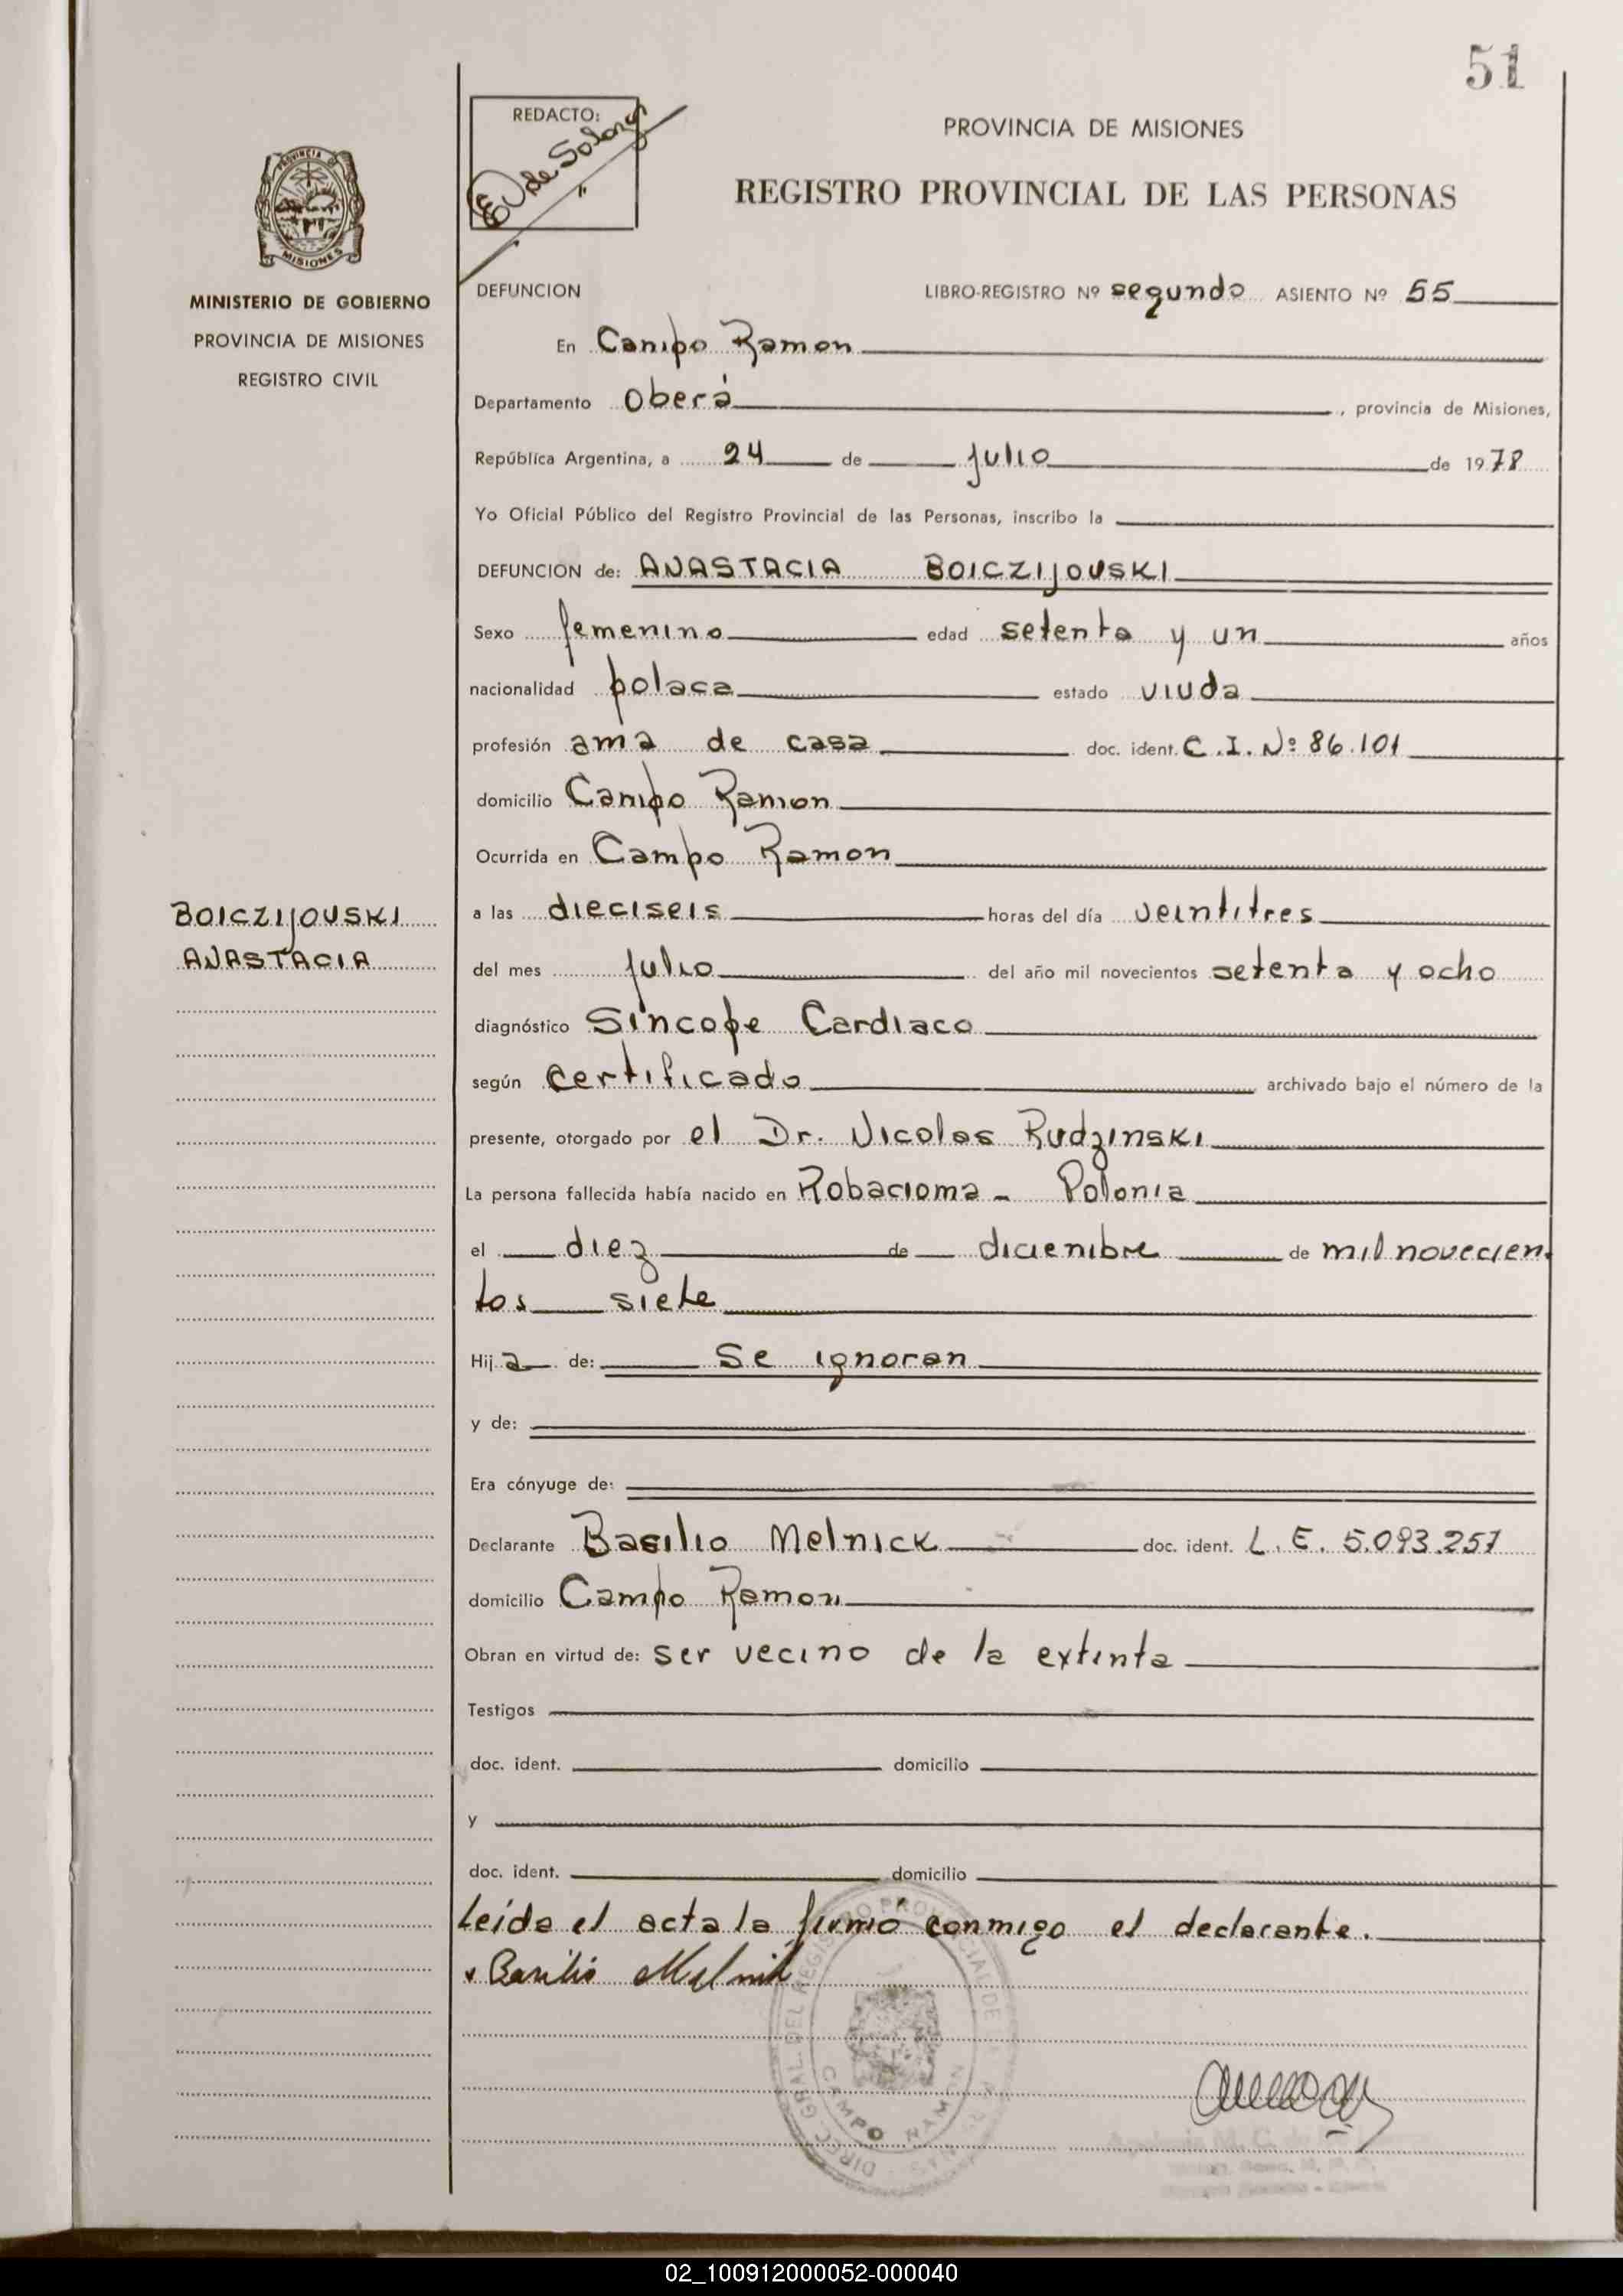 51
REDACTO:
de Solong
PROVINCIA DE MISIONES
REGISTRO PROVINCIAL DE LAS PERSONAS
PROVINCIA DE
MISIONES
MINISTERIO DE GOBIERNO
PROVINCIA DE MISIONES
REGISTRO CIVIL
DEFUNCION LIBRO-REGISTRO Nº segundo ASIENTO Nº 55
En Campo Ramon
Departamento Oberá, provincia de Misiones,
República Argentina, a 24 de julio de 1978
Yo Oficial Público del Registro Provincial de las Personas, inscribo la
DEFUNCION de: ANASTACIA BOICZIJOUSKI
Sexo femenino edad setenta y un años
nacionalidad polaca estado viuda
profesión ama de casa doc. ident. C.I. Nº 86.101
domicilio Campo Ramon
Ocurrida en Campo Ramon
BOICZIJOUSKI
ANASTACIA
a las dieciseis horas del día veintitres
del mes julio del año mil novecientos setenta y ocho
diagnóstico Síncope Cardiaco
según certificado archivado bajo el número de la
presente, otorgado por el Dr. Nicolas Rudzinski
La persona fallecida había nacido en Robacioma - Polonia
el diez de diciembre de mil novecien
tos siete
Hija de: Se ignoran
y de:
Era cónyuge de:
Declarante Basilio Melnick doc. ident. L.E. 5.093.257
domicilio Campo Ramon
Obran en virtud de: ser vecino de la extinta
Testigos
doc. ident. domicilio
y
doc. ident. domicilio
Leida el acta la firmó conmigo el declarante.
Basilio Melnik
DIREC. GRAL. DEL REGISTRO PROVINCIAL DE LAS PERSONAS
CAMPO RAMON
02_100912000052-000040